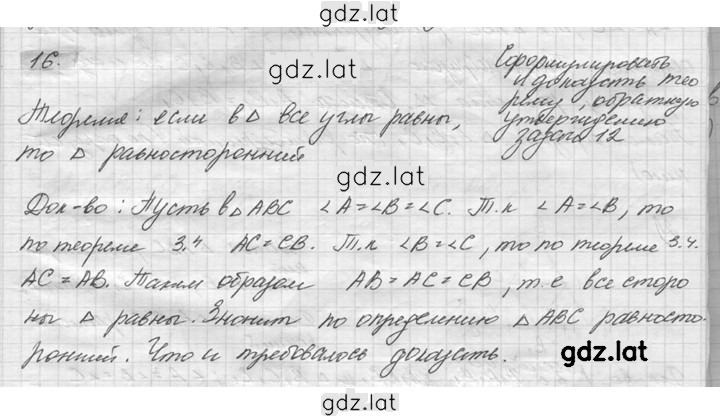 gdz.lat
16.
gdz.lat
Сформулировать
и доказать тео
рему, обратную
утверждению
задачи 12
Теорема: если в △ все углы равны,
то △ равносторонний
gdz.lat
Док-во: Пусть в △ ABC ∠A=∠B=∠C. Т.к ∠A=∠B, то
по теореме 3.4 AC=CB. Т.к ∠B=∠C, то по теореме 3.4.
AC=AB. Таким образом AB=AC=CB, т.е все сторо
ны △ равны. Значит по определению △ ABC равносто-
ронний. Что и требовалось доказать.
gdz.lat
gdz.lat